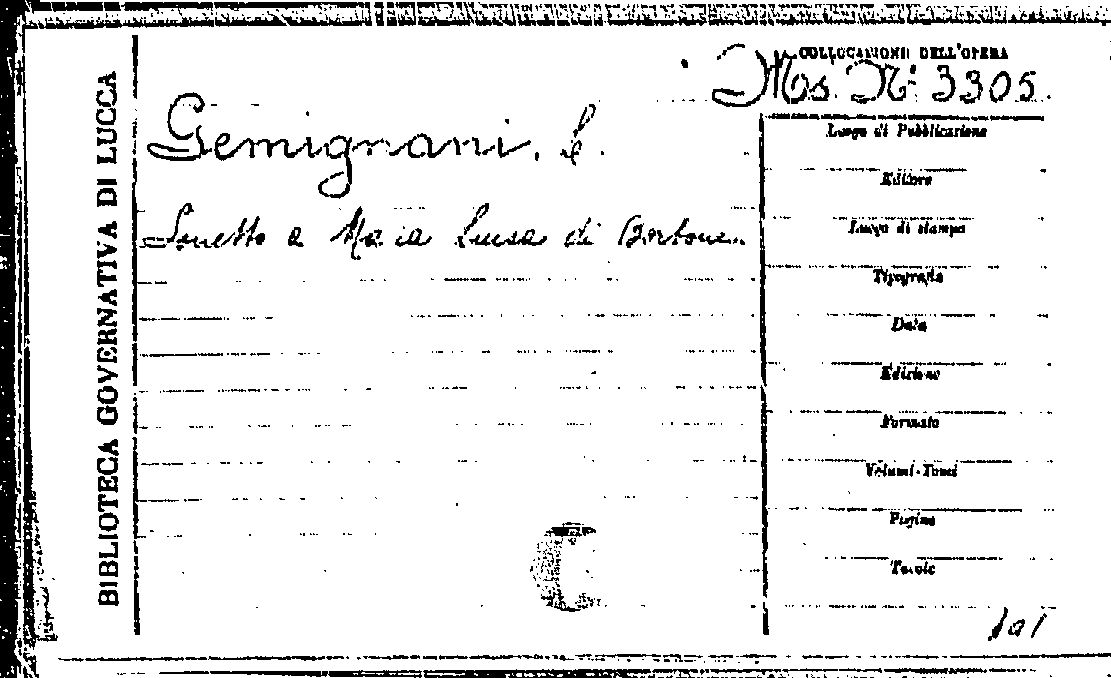 BIBLIOTECA GOVERNATIVA DI LUCCA
COLLOCAZIONE DELL'OPERA
Ms. N° 3305.
Gemignani, L.
Sonetto a Maria Luisa di Borbone.
Luogo di Pubblicazione
Editore
Luogo di stampa
Tipografia
Data
Edizione
Formato
Volumi-Tomi
Pagine
Tavole